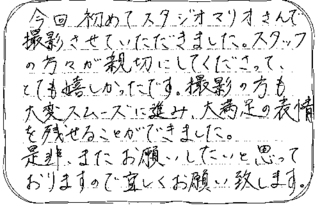 今回初めてスタジオマリオさんで
撮影させていただきました。スタッフ
の方々が親切にしてくださって、
とても嬉しかったです。撮影の方も
大変スムーズに進み、大満足の表情
を残せることができました。
是非、またお願いしたいと思って
おりますので宜しくお願い致します。